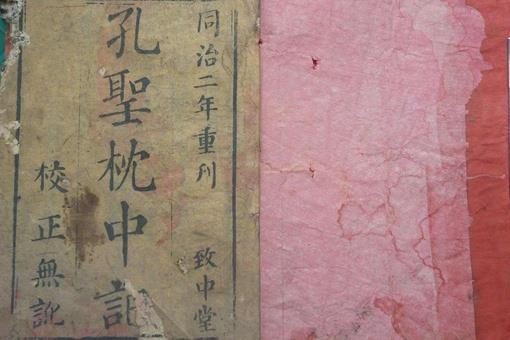 同治二年重刋 致中堂
孔聖枕中記
校正無訛